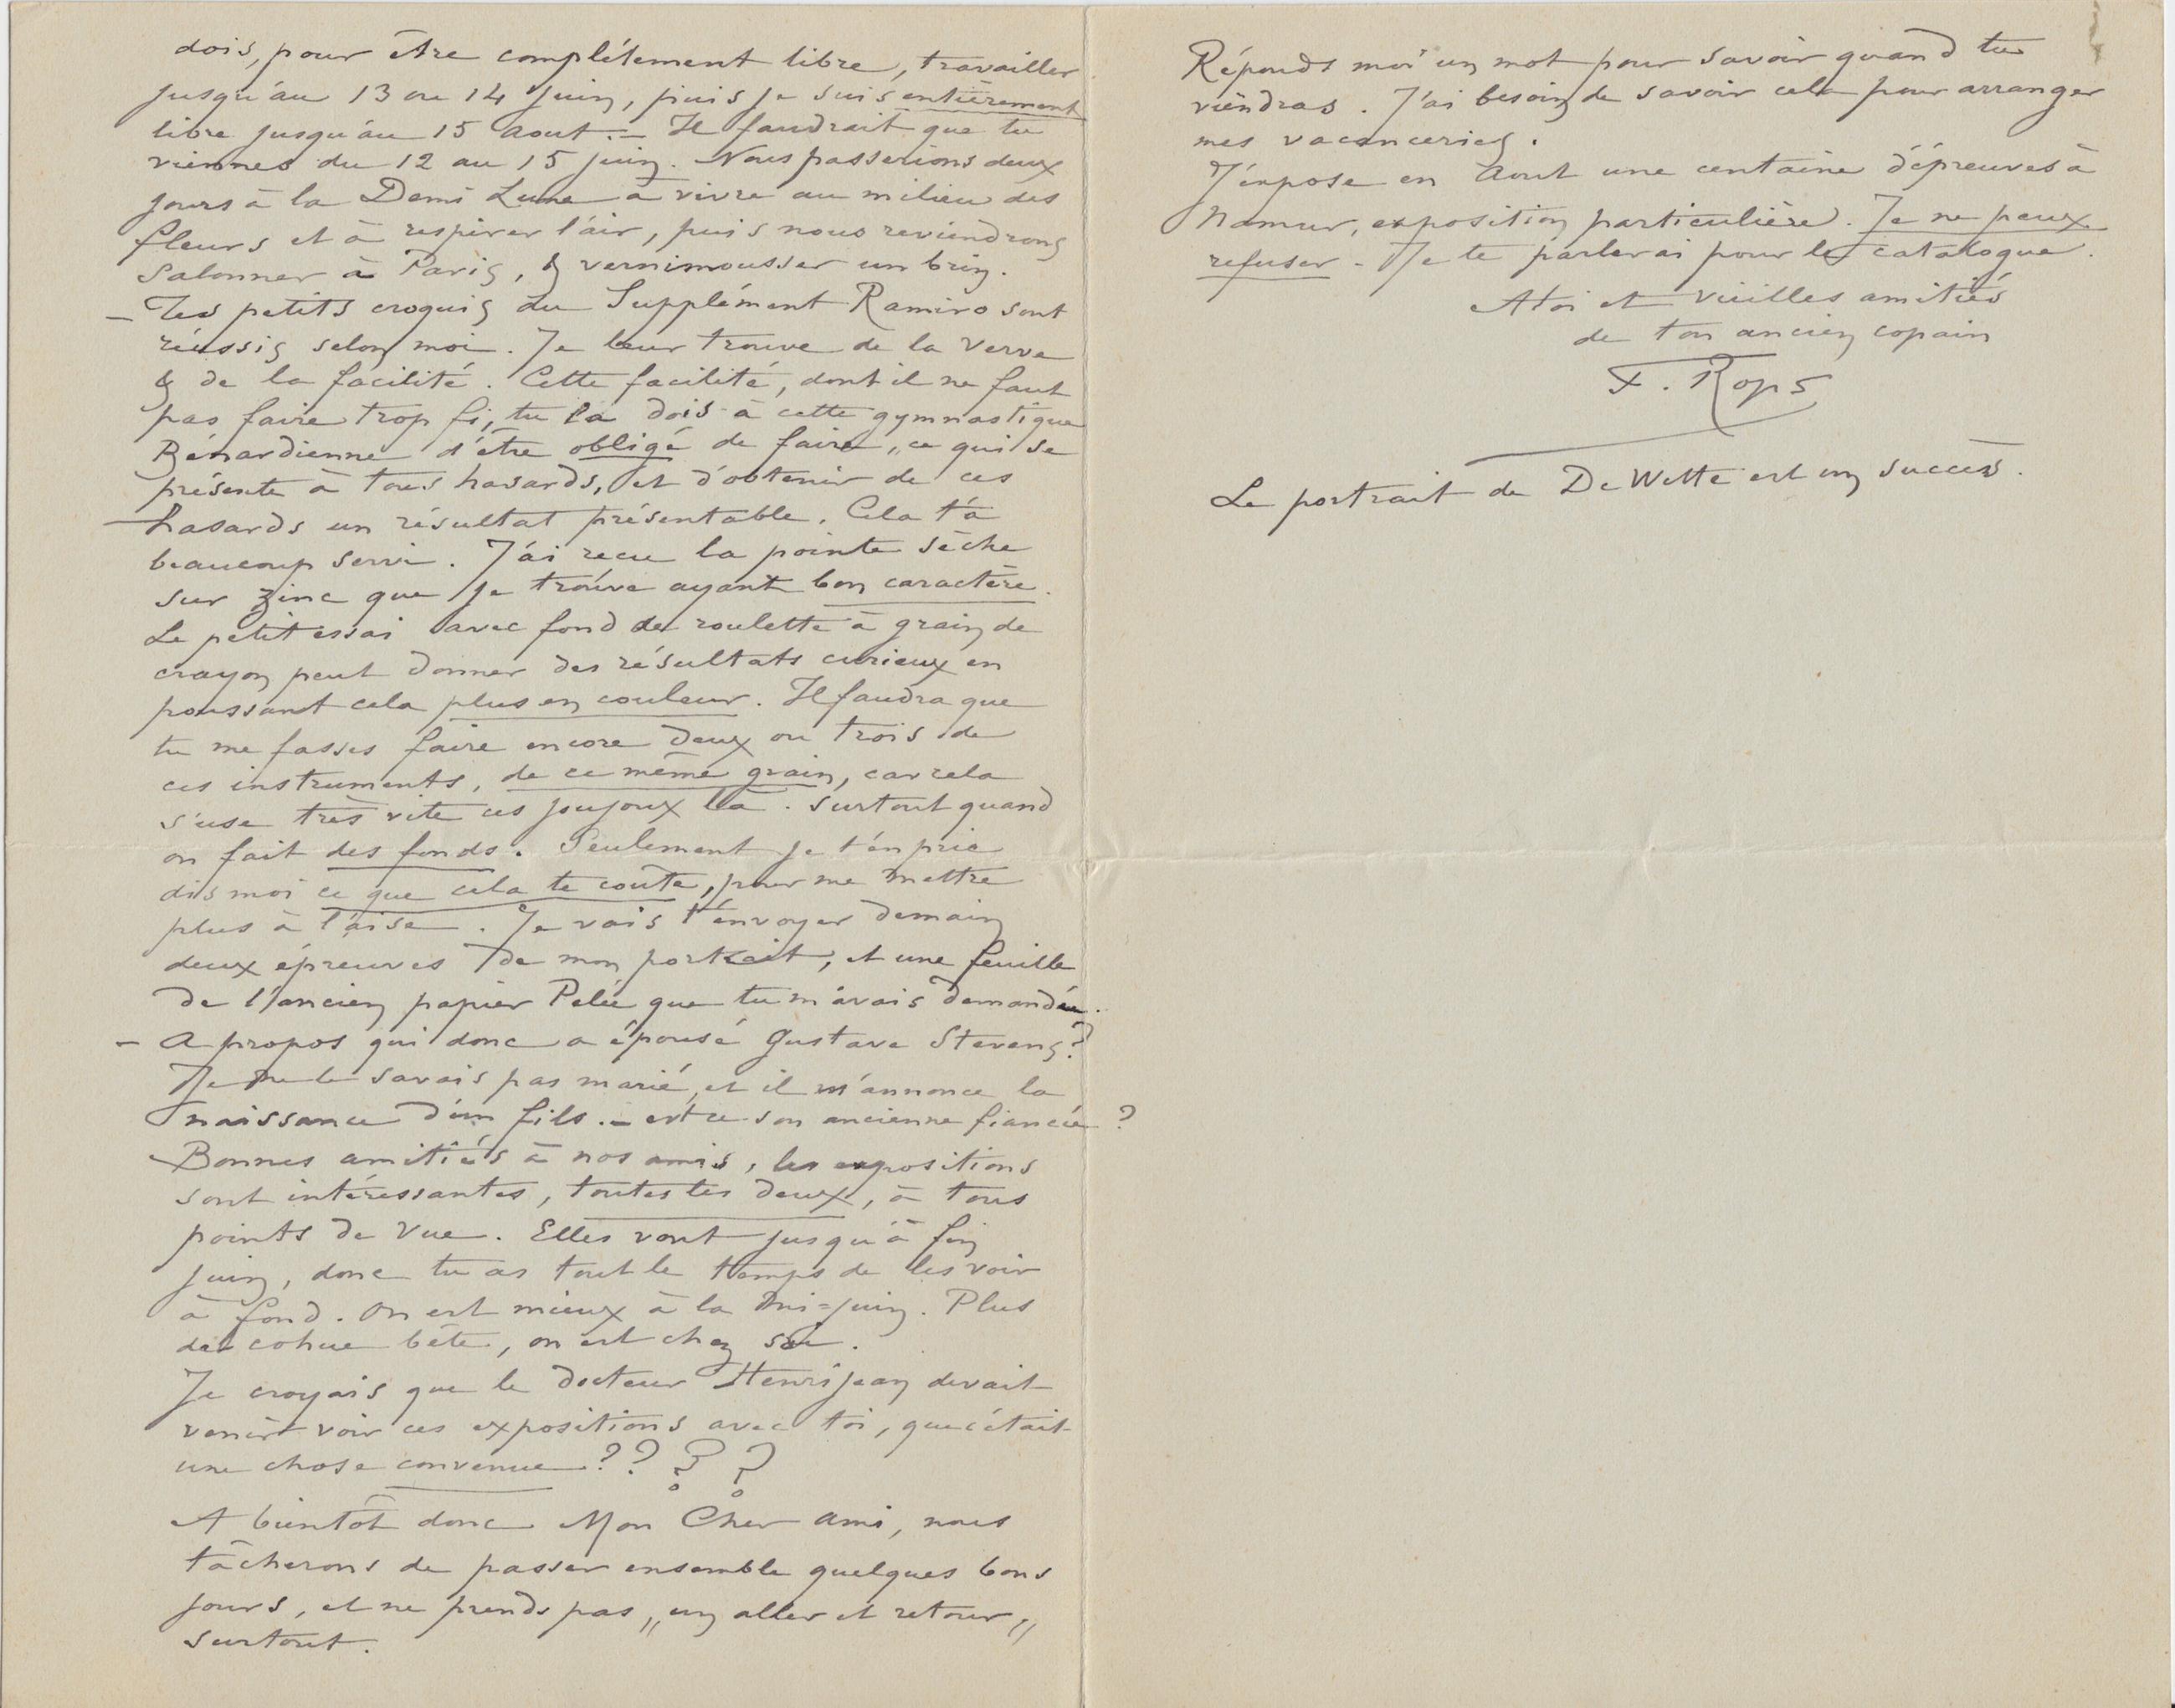 dois, pour être complétement libre, travailler
jusqu'au 13 ou 14 juin, puis je suis entièrement
libre jusqu'au 15 aout. – Il faudrait que tu
viennes du 12 au 15 juin. Nous passerions deux
jours à la Demi Lune à vivre au milieu des
fleurs et à respirer l'air, puis nous reviendrons
salonner à Paris, & vernimousser un brin.
– Tes petits croquis du Supplément Ramiro sont
réussis selon moi. Je leur trouve de la verve
& de la facilité. Cette facilité, dont il ne faut
pas faire trop fi, tu la dois à cette gymnastique
Bénardienne d'être obligé de faire „ce qui se
présente à tous hasards, et d'obtenir de ces
hasards un résultat présentable. Cela t'a
beaucoup servi. J'ai recu la pointe sèche
sur zinc que je trouve ayant bon caractère.
Le petit essai avec fond de roulette à grain de
crayon peut donner des résultats curieux en
poussant cela plus en couleur. Il faudra que
tu me fasses faire encore deux ou trois de
ces instruments, de ce même grain, car cela
s'use très vite ces joujoux là. Surtout quand
on fait des fonds. Seulement je t'en prie
dis moi ce que cela te coute, pour me mettre
plus à l'aise. Je vais t'envoyer demain
deux épreuves de mon portrait, et une feuille
de l'ancien papier Pelée que tu m'avais demandée.
– A propos qui donc a épousé Gustave Stevens?
Je ne le savais pas marié, et il m'annonce la
naissance d'un fils. – est ce son ancienne fiancée?
Bonnes amitiés à nos amis, les expositions
sont intéressantes, toutes les deux, à tous
points de vue. Elles vont jusqu'à fin
juin, donc tu as tout le temps de les voir
à fond. On est mieux à la mi=juin. Plus
de cohue bête, on est chez soi.
Je croyais que le docteur Henrijean devait
venir voir ces expositions avec toi, que c'était
une chose convenue ? ? ? ?
A bientôt donc Mon Cher ami, nous
tâcherons de passer ensemble quelques bons
jours, et ne prends pas „un aller et retour„
surtout.
Réponds moi un mot pour savoir quand tu
viendras. J'ai besoin de savoir cela pour arranger
mes vacanceries.
J'expose en Aout une centaine d'épreuves à
Namur, exposition particulière. Je ne peux
refuser – Je te parlerai pour le catalogue.
A toi et vieilles amitiés
de ton ancien copain
F. Rops
Le portrait de De Witte est un succès.